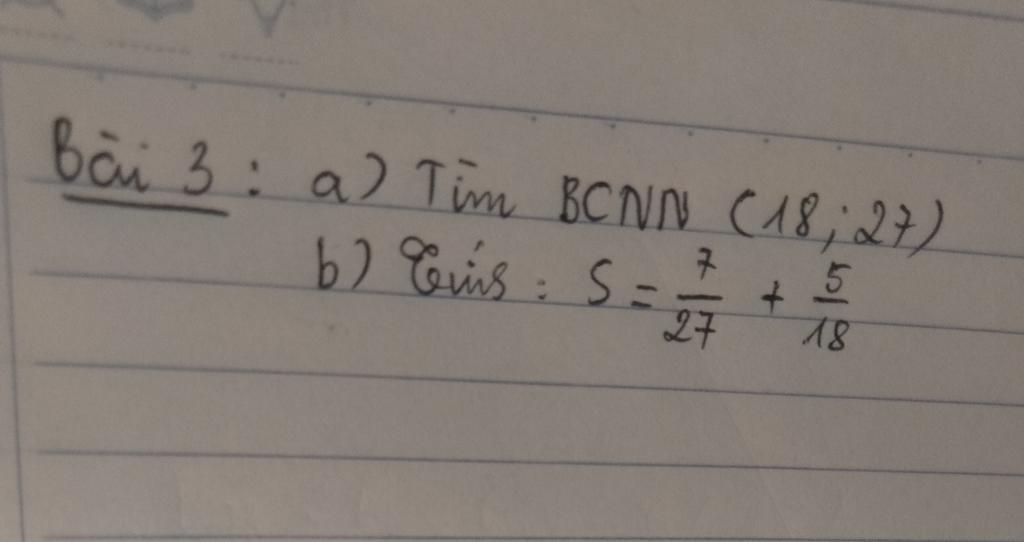 Bài 3 : a) Tìm BCNN (18; 27)
b) Tính : S = 7/27 + 5/18